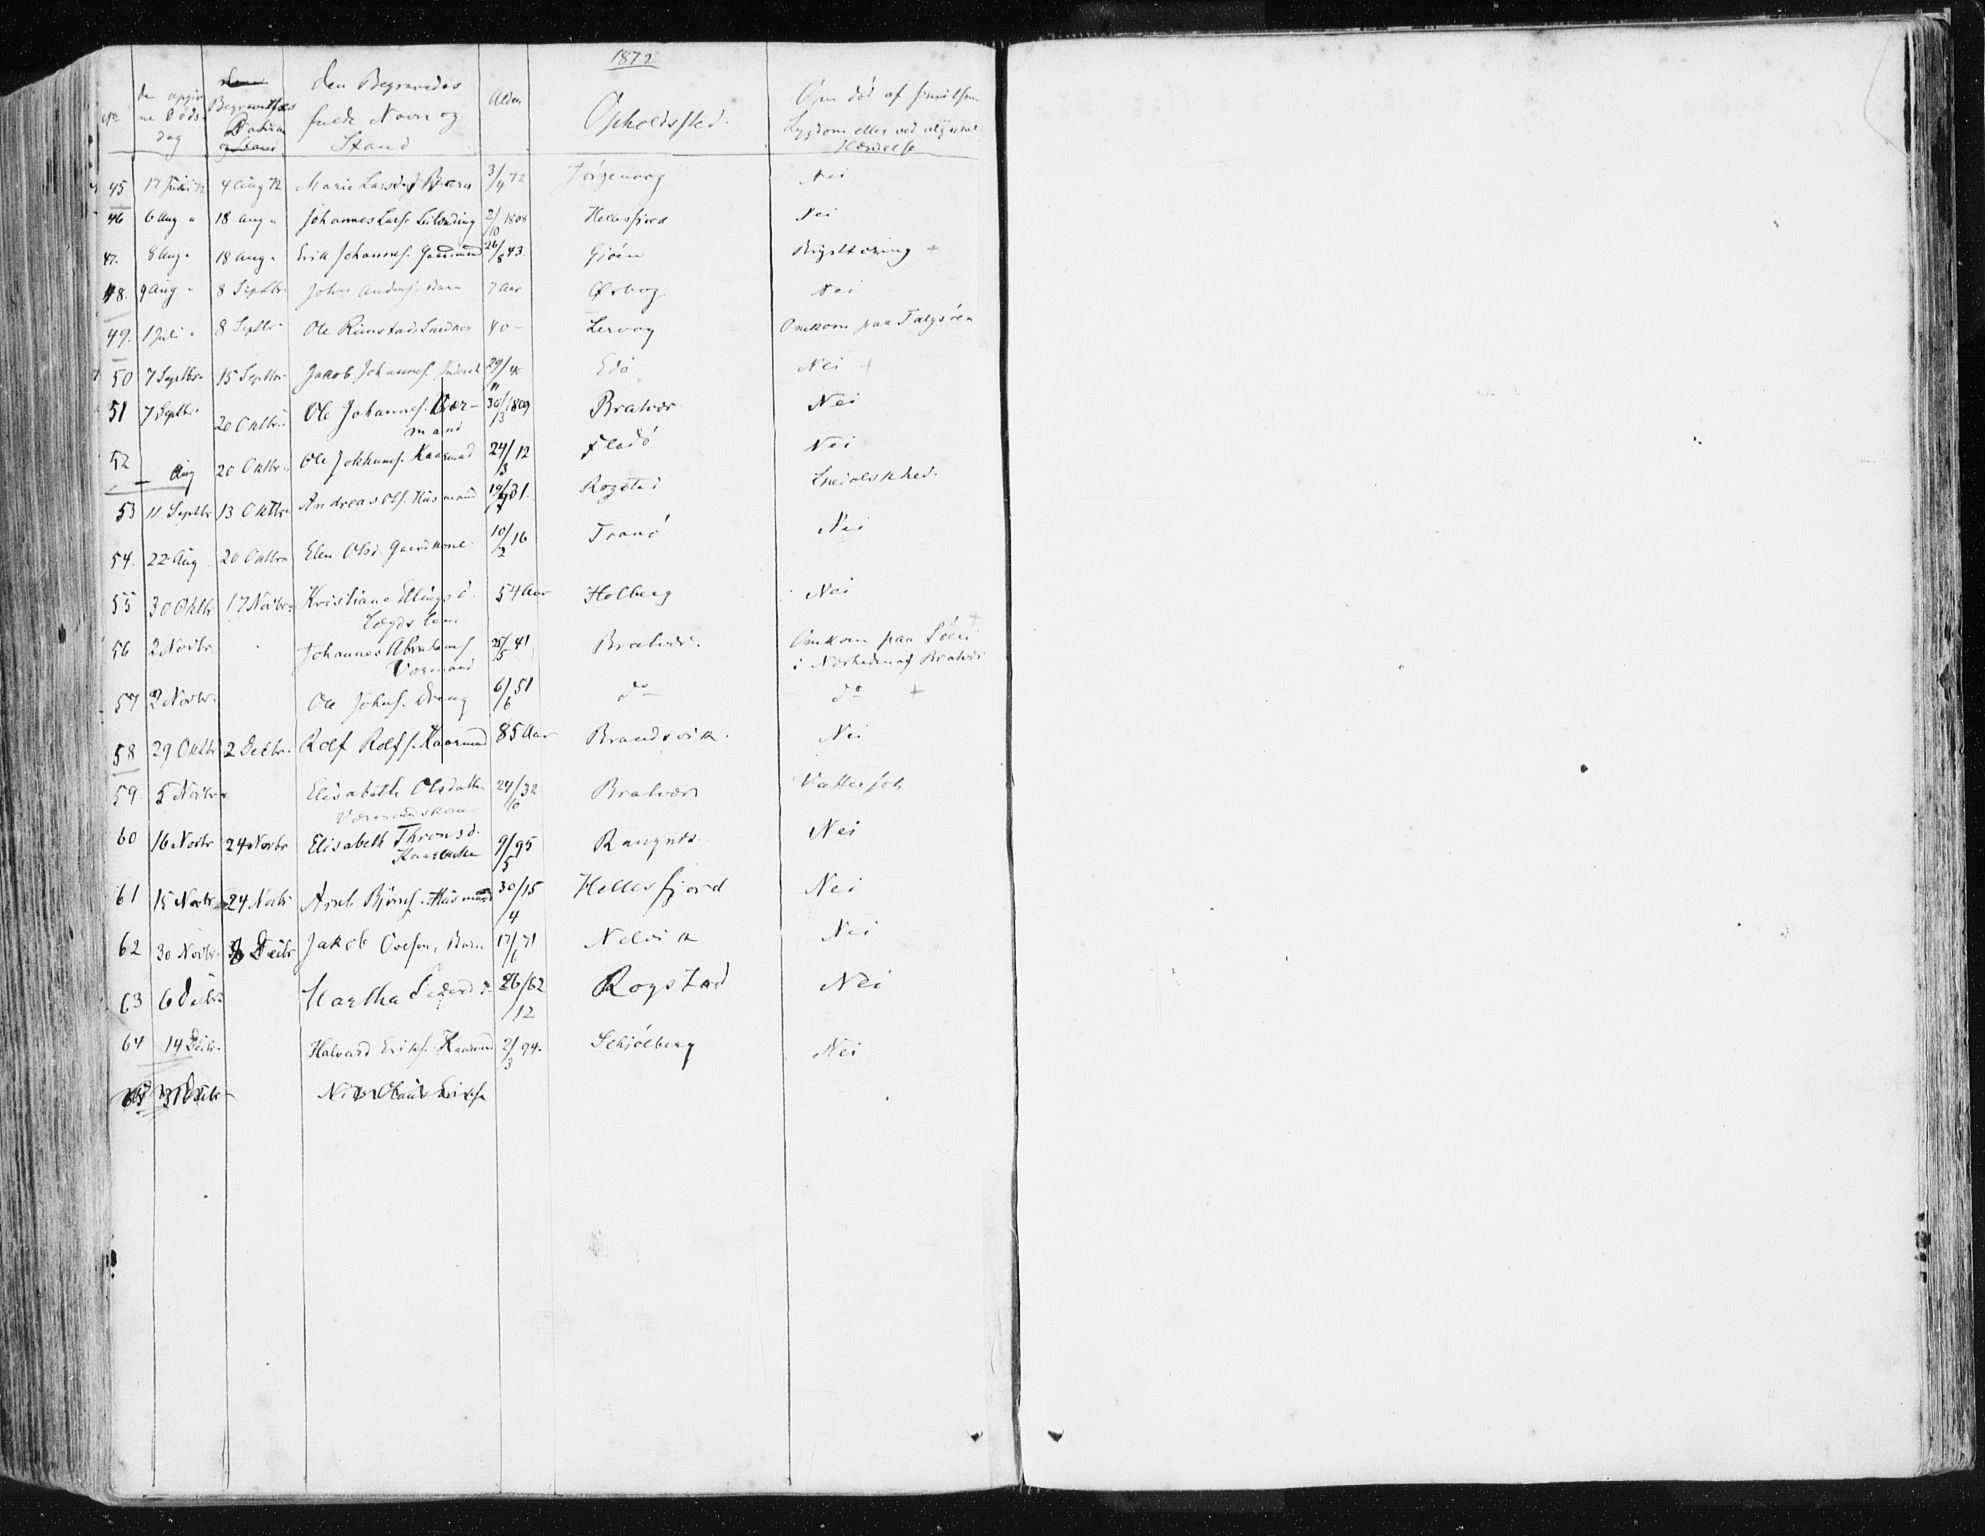 1872
No
den opgiv
ne Døds-
dag
Begravelses
Datum
og Stand
den Begravedes
fulde Navn og
Stand
Alder
Opholdssted.
Om død af smitsom
Sygdom eller ved ulykkel.
Hændelse
45 17 Juli 72 4 Aug 72 Marie Larsd. Barn 3/4 72 Jørgenvog Nei
46 6 Aug " 18 Aug " Johannes Larss. 2/10 1808 Hellesfjord Nei
47. 8 Aug " 18 Aug " Erik Johannes. Gaardmand 26/8 43. Gjøen +
48. 9 Aug " 8 Septbr John Anders. Barn 7 Aar Ørbog Nei
49. 1 Juli " 8 Septbr Ole Rimstad, Snedker 40 - Lervog Omkom paa
50 7 Septbr 15 Septbr Jakob Johannes. 29/11 40 Edø Nei +
51 7 Septbr 20 Oktbr Ole Johannes. Vær-
mand 30/3 1809 Bratvær Nei
52 - Aug 20 Oktbr. Ole Kaarmand 24/3 12 Fladø Nei
53 11 Septbr 13 Oktbr Andreas Ols. Husmand Rogsted
54. 22 Aug 20 Oktbr Elen Olsd. Gaardkone 10/2 16 Tranø Nei
55 30 Oktbr 17 Novbr Kristiane Ellingsd.
Lægdslem 54 Aar Holberg Nei
56 2 Novbr. Johannes Abrahams.
Værmand 25/5 41 Bratvær. Omkom paa Søen
i Nærheden af Bratvær
57 2 Novbr. Ole Johns. Dreng 6/6 51 do do +
58 29 Oktbr 2 Decbr. Rolf Rolfs. Kaarmand 85 Aar Brandsvik. Nei
59. 5 Novbr Elisabeth Olsdatter
Værmandskone 24/10 32 Bratvær Vattersot
60 16 Novbr 24 Novbr Elisabeth Thronsd.
Kaarenke 9/5 95 Rangnes. Nei
61 15 Novbr 24 Novbr Arnt Bjørns. Husmand 30/4 15 Hellesfjord Nei
62 30 Novbr Decbr Jakob Ovesen, Barn 17/6 71 Nelvik Nei
63 6 Decbr Martha 26/12 62 Rogstad Nei
64 14 Decbr. Halvard Eriks. Kaarmand 2/3 94. Schjølberg Nei
65 31 Decbr Nils Olaus Eriks.